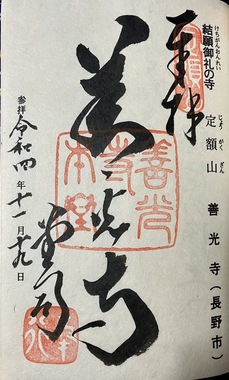 結願御礼の寺
けちがんおんれい
定額山　善光寺（長野市）
じょうがくざん
奉拝
善光寺
参拝 令和四年十一月十九日
善光寺本堂